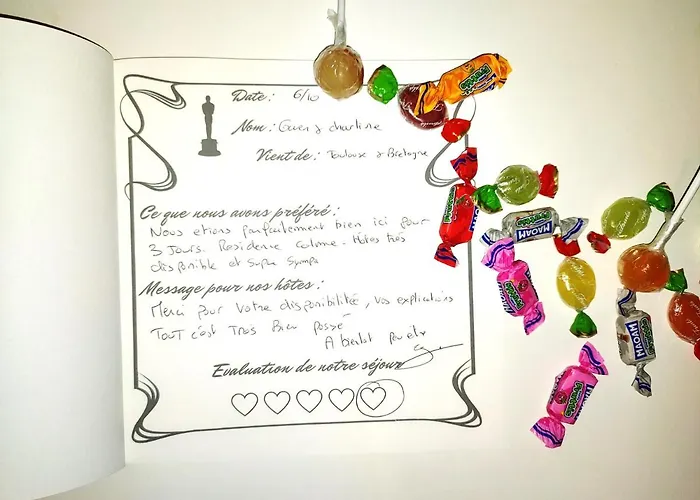 Date : 6/10
Nom : Gwen & charline
Vient de : Toulouse & Bretagne
Ce que nous avons préféré :
Nous etions parfaitement bien ici pour
3 Jours. Residence calme. Hôtes très
disponible et Super Sympa
Message pour nos hôtes :
Merci pour votre disponibilitée, vos explications
Tout c'est Très Bien passé
A bientot peut etr
Evaluation de notre séjour
MAOAM
MAOAM